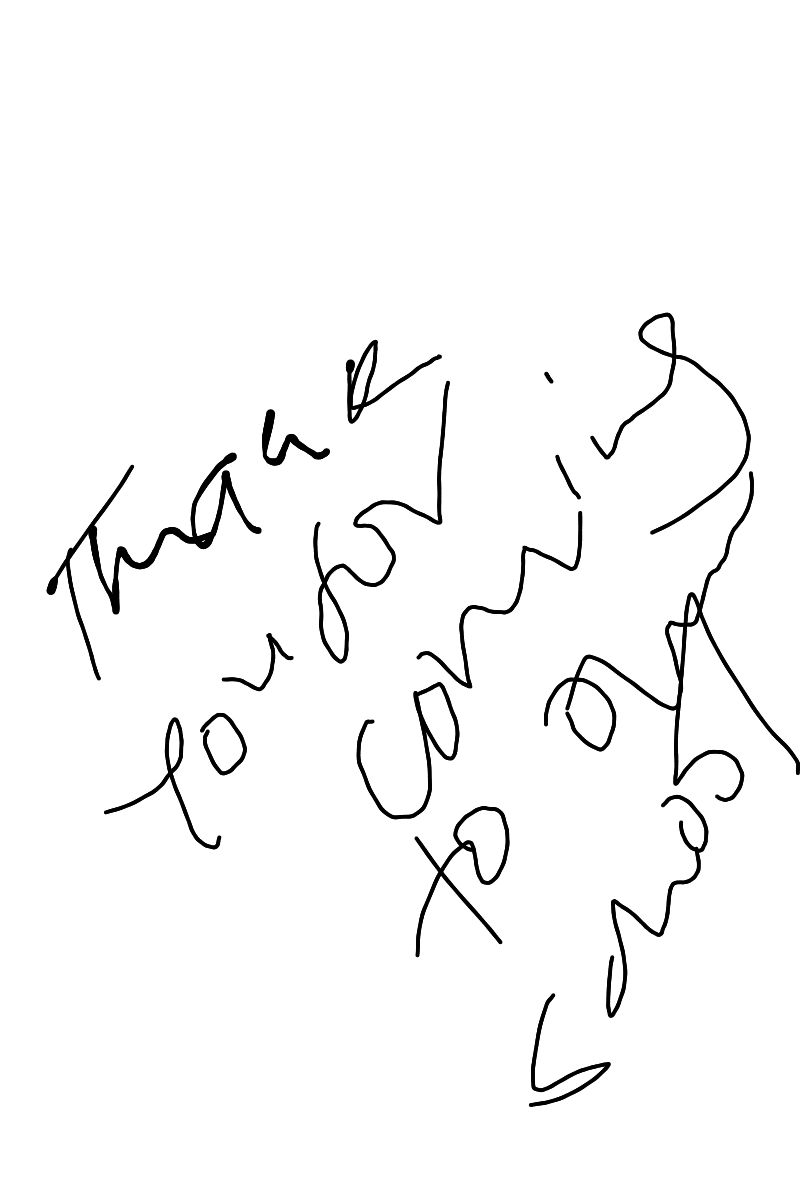 Thank
you for
coming
to our